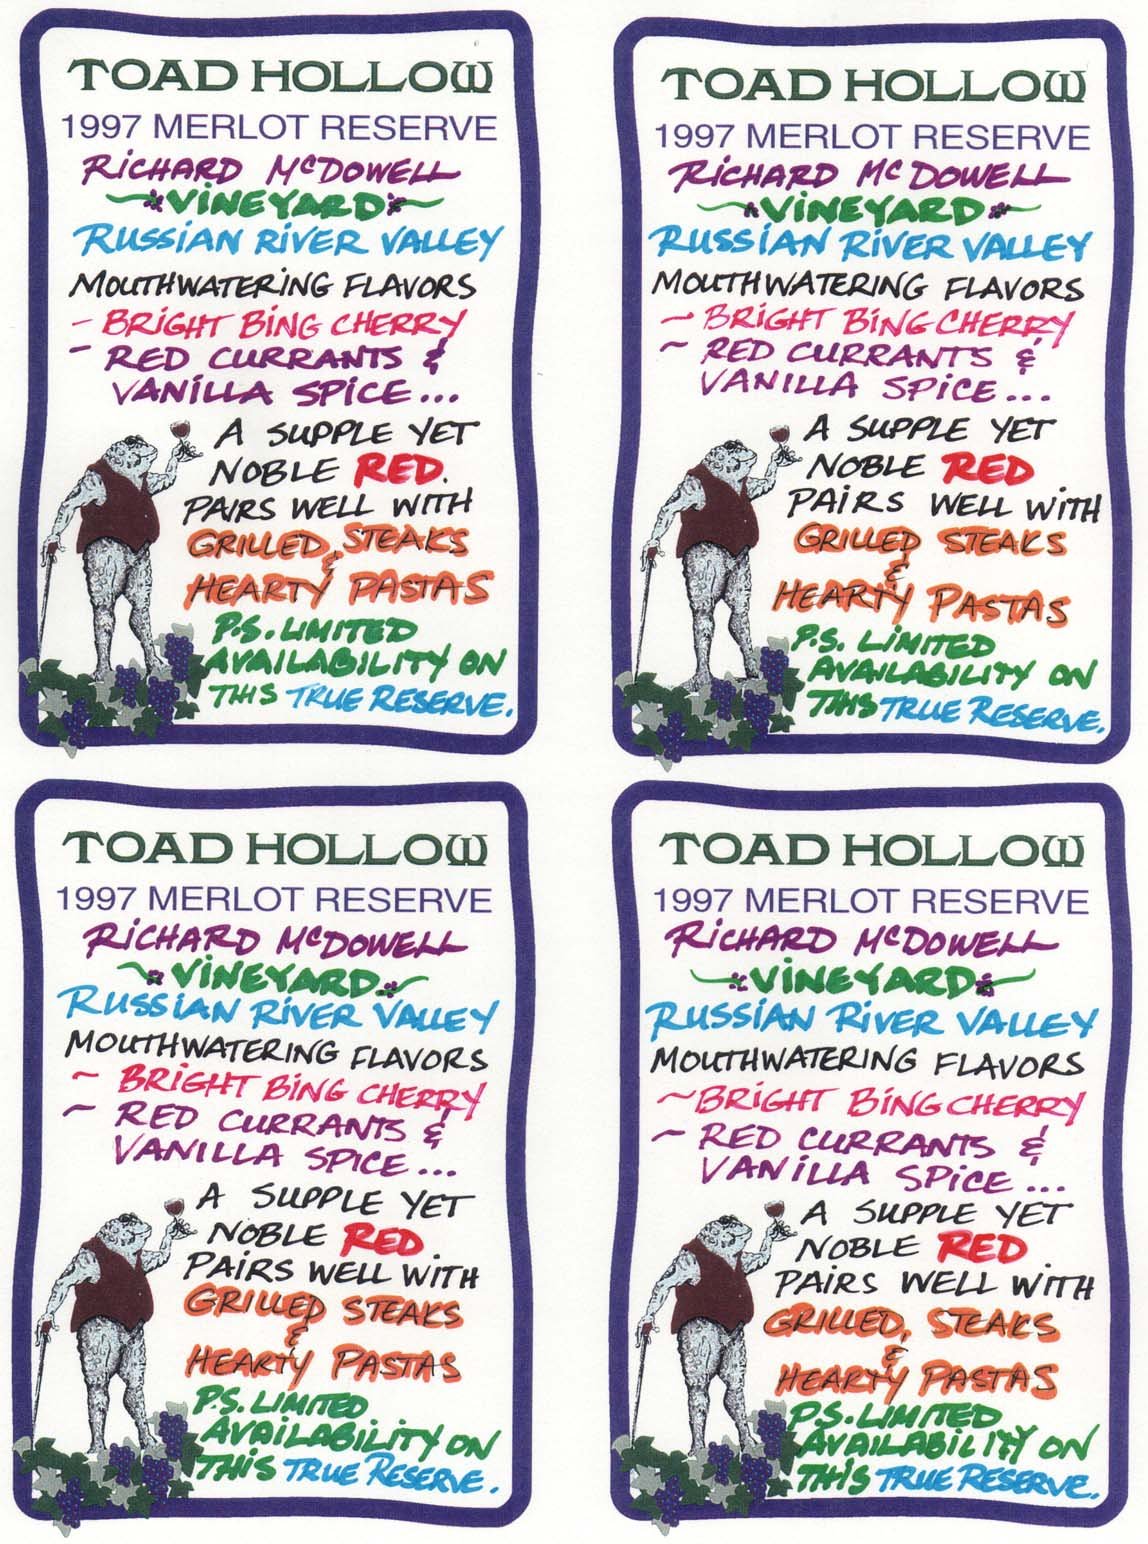 TOAD HOLLOW
1997 MERLOT RESERVE
RICHARD McDOWELL
VINEYARD
RUSSIAN RIVER VALLEY
MOUTHWATERING FLAVORS
- BRIGHT BING CHERRY
- RED CURRANTS &
VANILLA SPICE...
A SUPPLE YET
NOBLE RED.
PAIRS WELL WITH
GRILLED, STEAKS
&
HEARTY PASTAS
P.S. LIMITED
AVAILABILITY ON
THIS TRUE RESERVE.
TOAD HOLLOW
1997 MERLOT RESERVE
RICHARD McDOWELL
VINEYARD
RUSSIAN RIVER VALLEY
MOUTHWATERING FLAVORS
~ BRIGHT BING CHERRY
~ RED CURRANTS &
VANILLA SPICE...
A SUPPLE YET
NOBLE RED
PAIRS WELL WITH
GRILLED STEAKS
&
HEARTY PASTAS
P.S. LIMITED
AVAILABILITY ON
THIS TRUE RESERVE.
TOAD HOLLOW
1997 MERLOT RESERVE
RICHARD McDOWELL
VINEYARD
RUSSIAN RIVER VALLEY
MOUTHWATERING FLAVORS
~ BRIGHT BING CHERRY
~ RED CURRANTS &
VANILLA SPICE...
A SUPPLE YET
NOBLE RED
PAIRS WELL WITH
GRILLED STEAKS
&
HEARTY PASTAS
P.S. LIMITED
AVAILABILITY ON
THIS TRUE RESERVE.
TOAD HOLLOW
1997 MERLOT RESERVE
RICHARD McDOWELL
VINEYARD
RUSSIAN RIVER VALLEY
MOUTHWATERING FLAVORS
~ BRIGHT BING CHERRY
~ RED CURRANTS &
VANILLA SPICE...
A SUPPLE YET
NOBLE RED
PAIRS WELL WITH
GRILLED, STEAKS
&
HEARTY PASTAS
P.S. LIMITED
AVAILABILITY ON
THIS TRUE RESERVE.